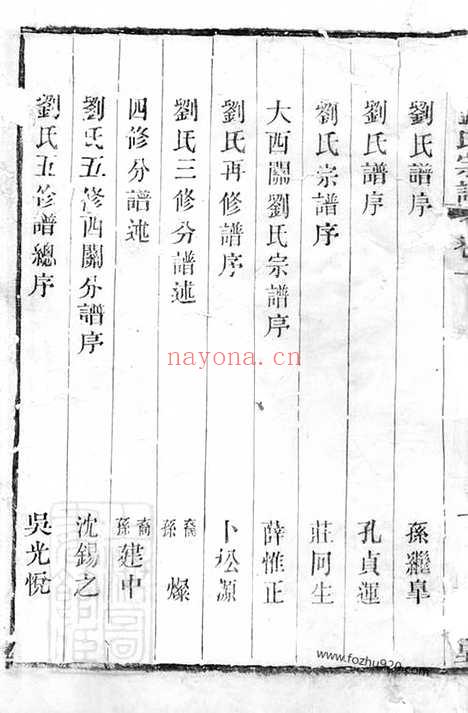 劉氏譜序 孫繼皐
劉氏譜序 孔貞運
劉氏宗譜序 莊同生
大西關劉氏宗譜序 薛惟正
劉氏再修譜序 卜松源
劉氏三修分譜述 裔孫燦
四修分譜述 裔孫建中
劉氏五修西關分譜序 沈錫之
劉氏五修譜總序 吳光悅
nayona.cn
www.fozhu920.com